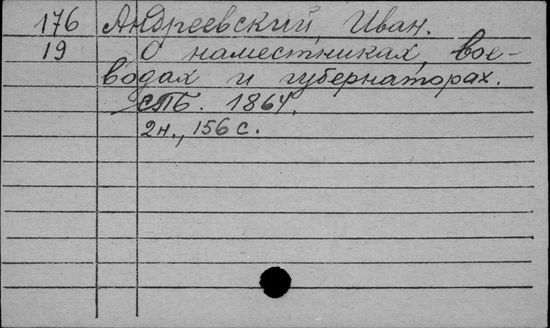 176 Андреевский, Иван.
19 О наместниках, вое-
водах и губернаторах.
СПБ. 1864.
2н., 156 с.